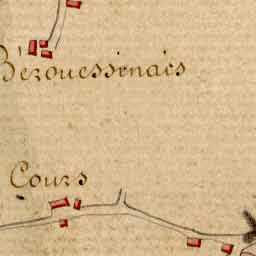 Bézouessinais
Cours